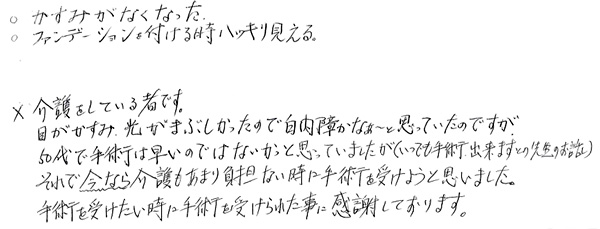 ○ かすみがなくなった.
○ ファンデーションを付ける時ハッキリ見える。
× 介護をしている者です。
目がかすみ、光がまぶしかったので白内障かなぁ〜と思っていたのですが、
50代で手術は早いのではないかっと思っていましたが(いつでも手術出来ますとの先生のお話)
それで今なら介護もあまり負担ない時に手術を受けようと思いました。
手術を受けたい時に手術を受けられた事に感謝しております。